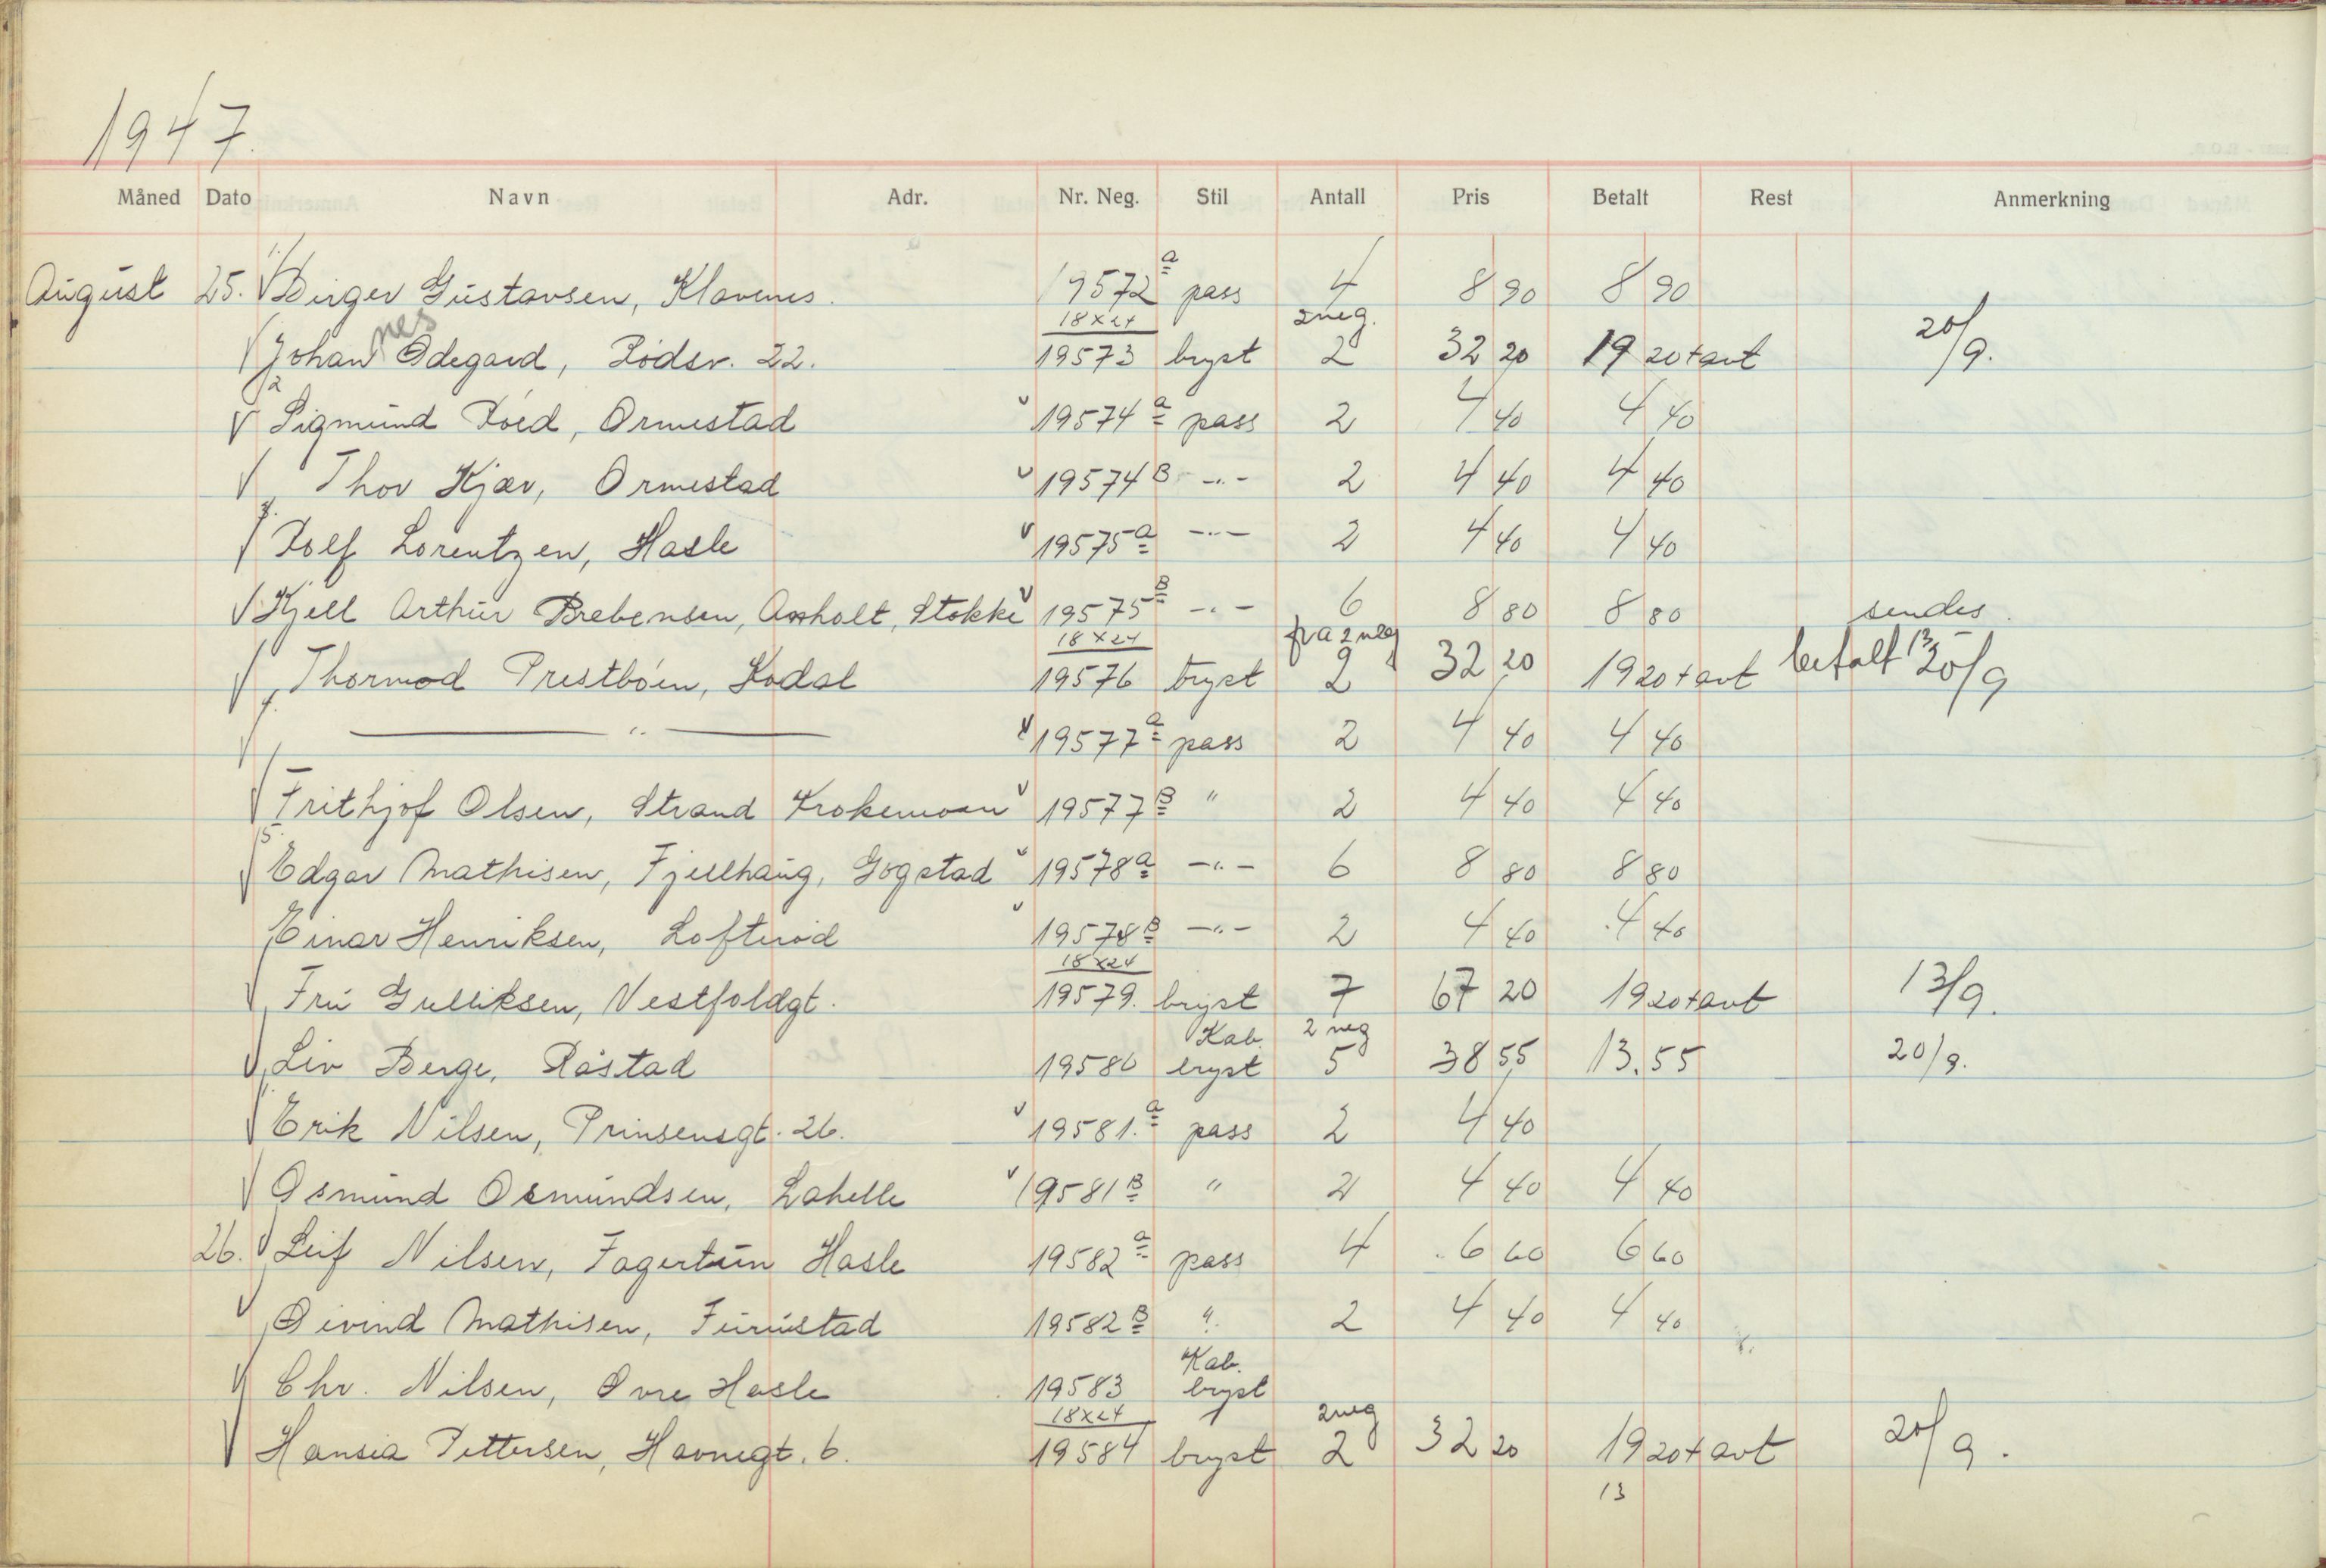 1947.
Måned Dato Navn Adr. Nr. Neg. Stil Antall Pris Betalt Rest Anmerkning
August 25. 1. Birger Gustavsen, Klavenes. 19572 a pass 4 8 90 8 90
nes 18x24 2 neg.
Johan Ødegard, Rødsv. 22. 19573 bryst 2 32 20 19 20 + avt 20/9.
2 Sigmund Röed, Ormestad 19574 a pass 2 4 40 4 40
Thor Kjær, Ormestad 19574 B -"- 2 4 40 4 40
3. Rolf Lorentzen, Hasle 19575 a -"- 2 4 40 4 40
Kjell Arthur Brebensen, Anholt, Stokke 19575 B -"- 6 8 80 8 80 sendes.
18x24 fra 2 neg
Thormod Prestböen, Kodal 19576 bryst 2 32 20 19 20 + avt betalt 13 - 20/9
4. -"- 19577 a pass 2 4 40 4 40
Frithjof Olsen, Strand Krokemoan 19577 B " 2 4 40 4 40
5. Edgar Mathisen, Fjellhaug, Gogstad 19578 a -"- 6 8 80 8 80
Einar Henriksen, Lofteröd 19578 B -"- 2 4 40 4 40
18x24
Fru Gulliksen, Vestfoldgt. 19579. bryst 7 67 20 19 20 + avt 13/9.
Kab. 2 neg
Liv Berge, Råstad 19580 bryst 5 38 55 13.55 20/9.
Erik Nilsen, Prinsensgt. 26. 19581. a pass 2 4 40
Osmund Osmundsen, Lahelle 19581 B " 2 4 40 4 40
26. Leif Nilsen, Fagertun Hasle 19582 a pass 4 6 60 6 60
Øivind Mathisen, Furustad 19582 B " 2 4 40 4 40
Kab.
Chr. Nilsen, Øvre Hasle 19583 bryst
18x24 2 neg
Hansia Pettersen, Havnegt. 6. 19584 bryst 2 32 20 19 20 + avt 20/9.
13